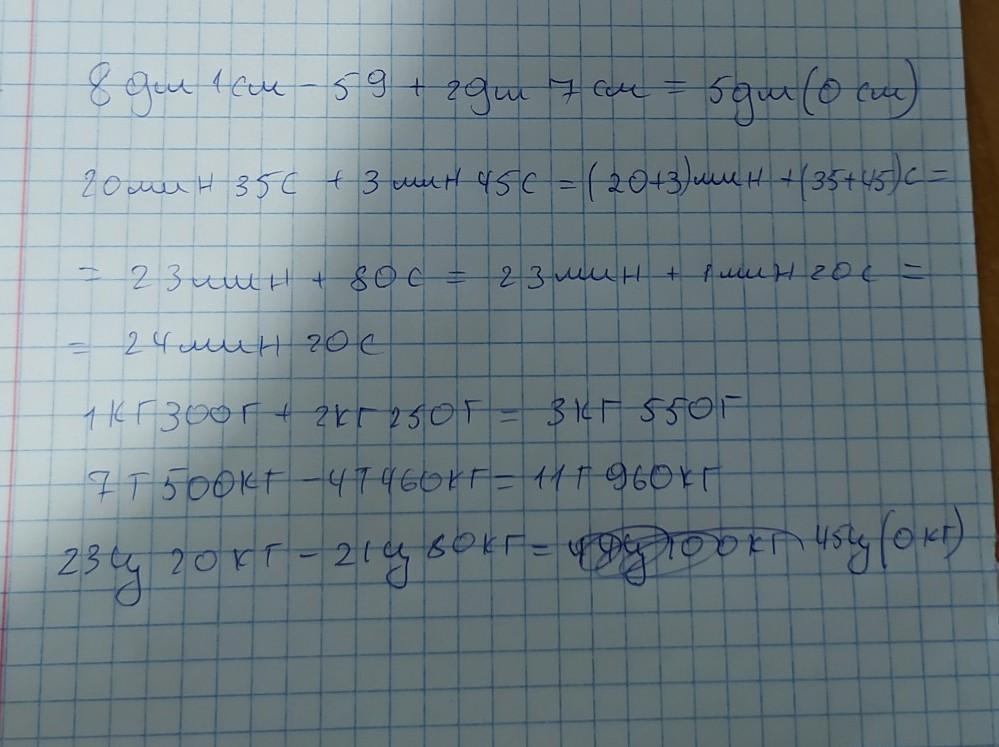 8 дм 1 см - 59 + 2 дм 7 см = 5 дм (0 см)
20 мин 35 с + 3 мин 45 с = (20+3) мин + (35+45) с =
= 23 мин + 80 с = 23 мин + 1 мин 20 с =
= 24 мин 20 с
1 кг 300 г + 2 кг 250 г = 3 кг 550 г
7 т 500 кг - 4 т 460 кг = 11 т 960 кг
23 ц 20 кг - 21 ц 80 кг = 45 ц (0 кг)